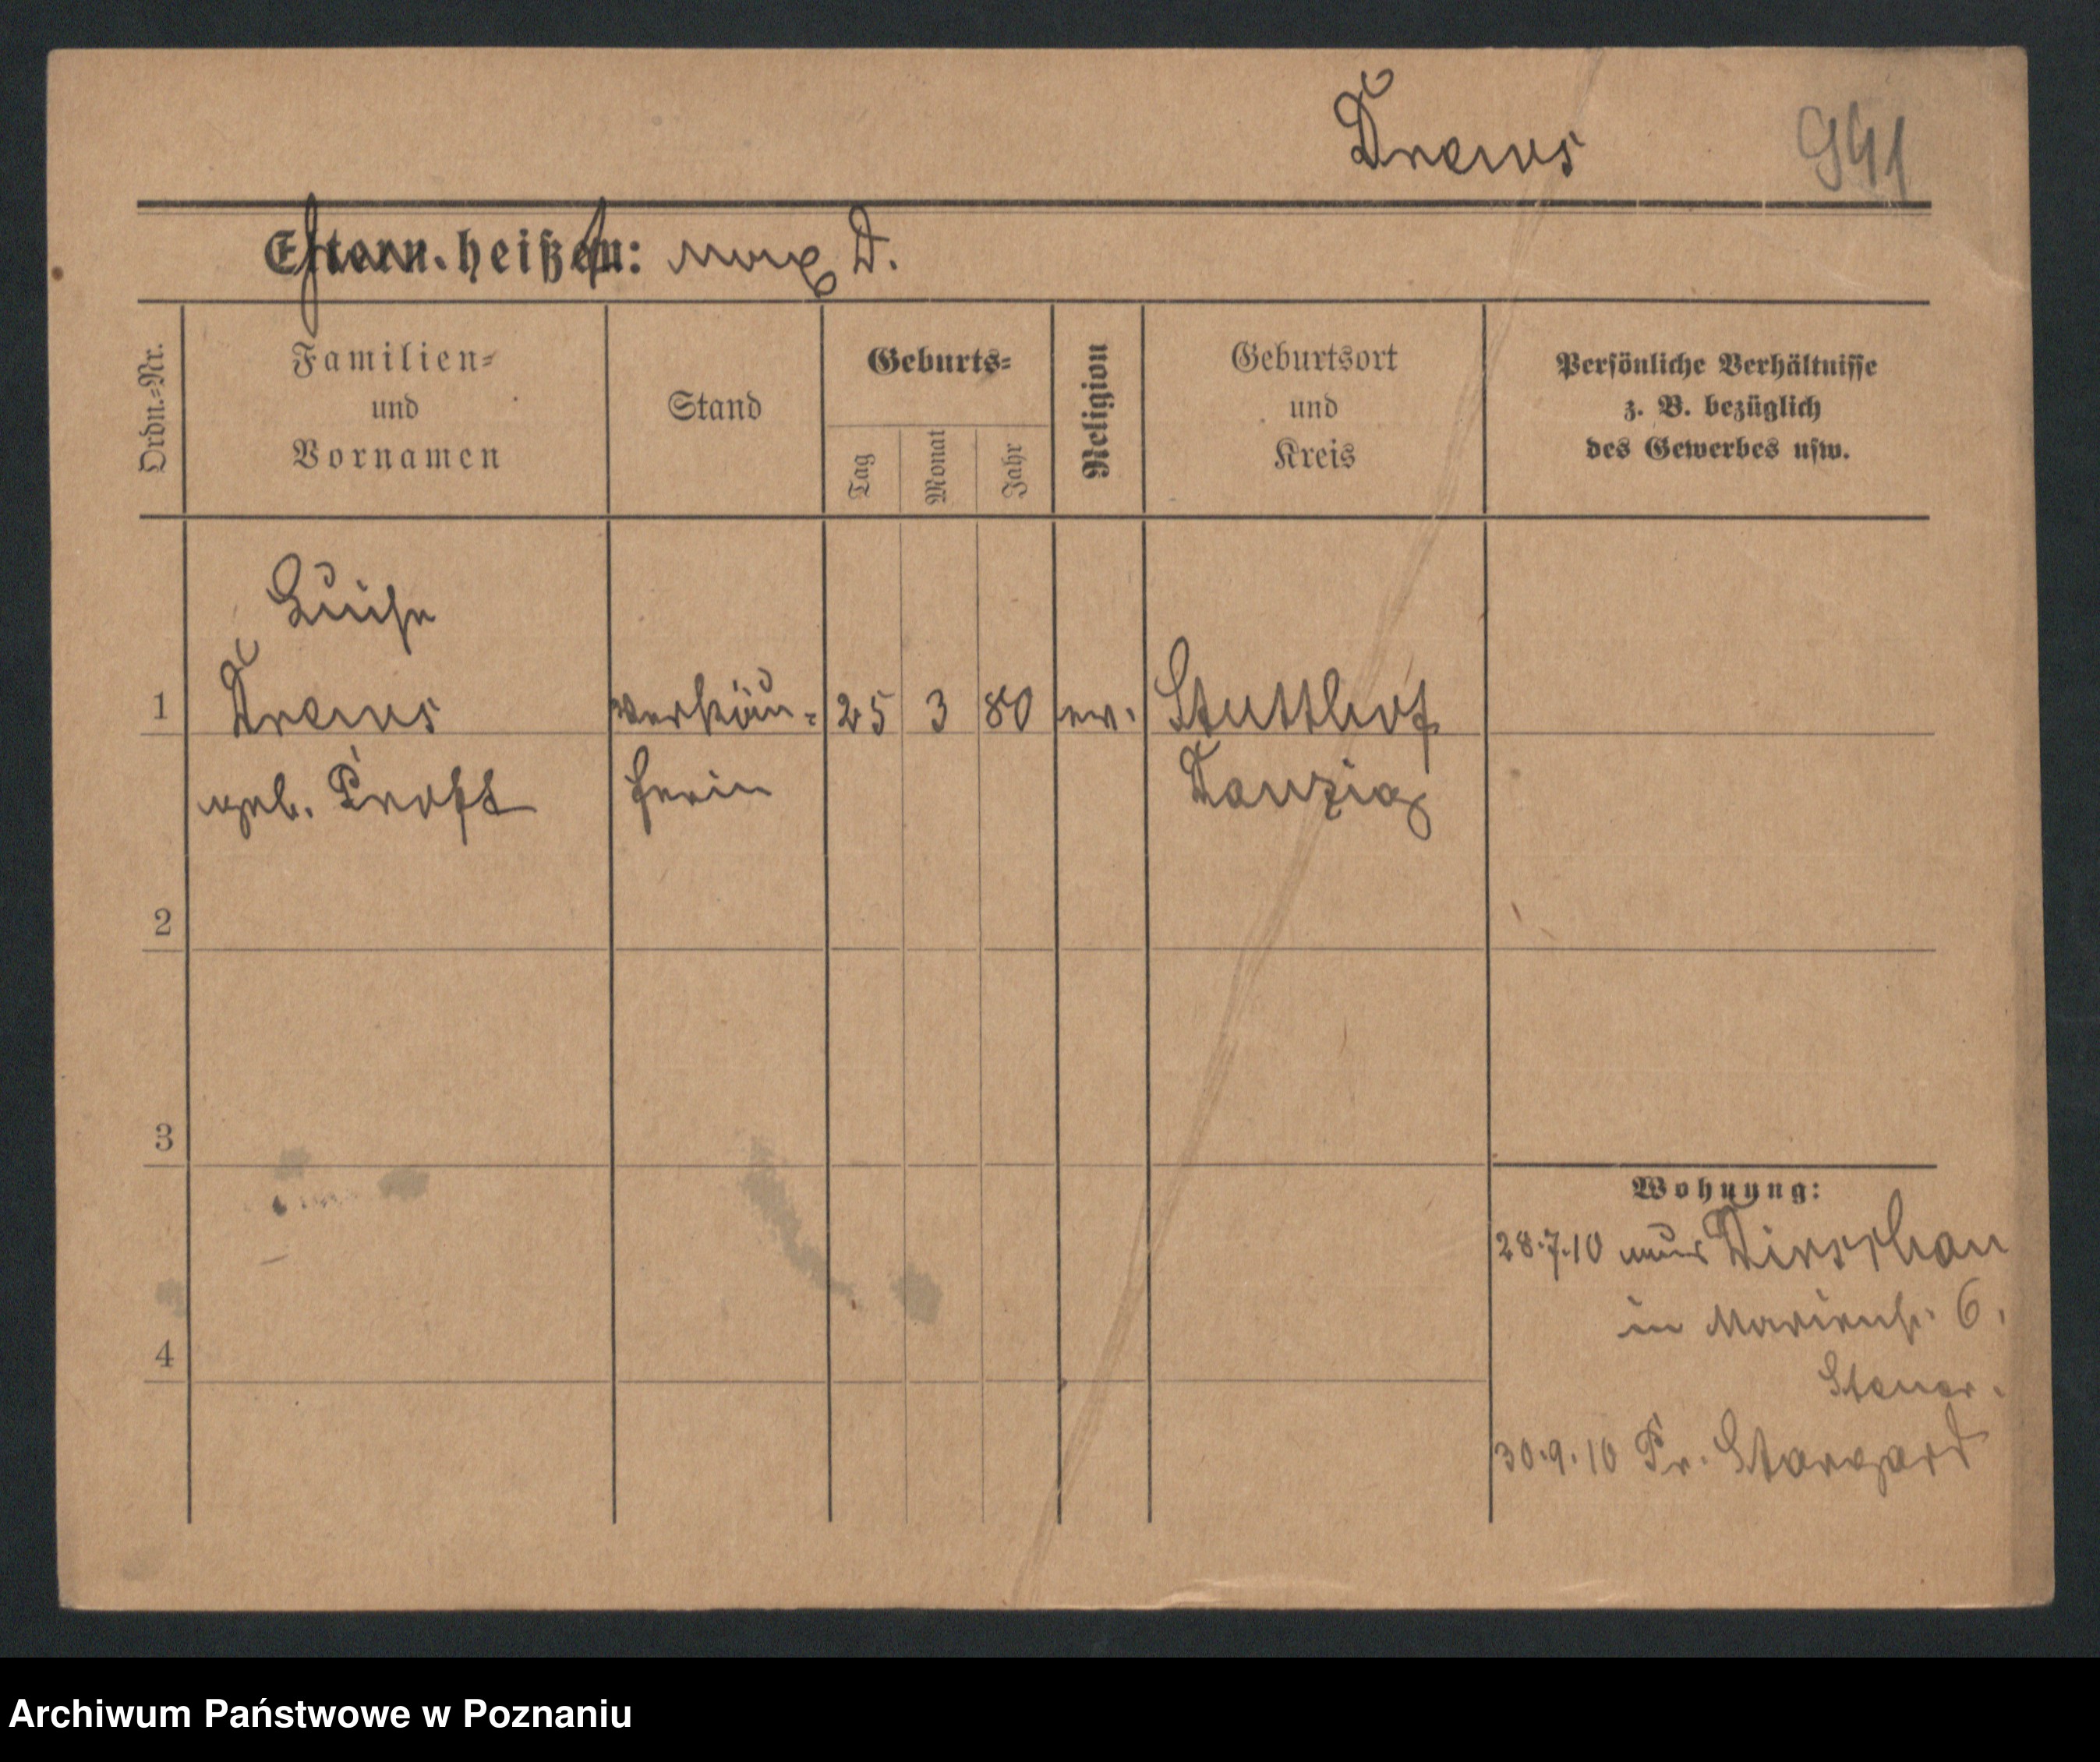 Drews 941
Eltern heißen: Max D.
Ordn.-Nr.
Familien-
und
Vornamen
Stand
Geburts-
Tag
Monat
Jahr
Religion
Geburtsort
und
Kreis
Persönliche Verhältnisse
z. B. bezüglich
des Gewerbes usw.
Luise
1 Drews Verkäu- 25 3 80 ev. Stutthof
geb. Proft ferin Danzig
2
3
4
Wohnung:
28.7.10 aus Dirschau
in Marienstr. 6.
30.9.10 Pr. Stargard
Archiwum Państwowe w Poznaniu